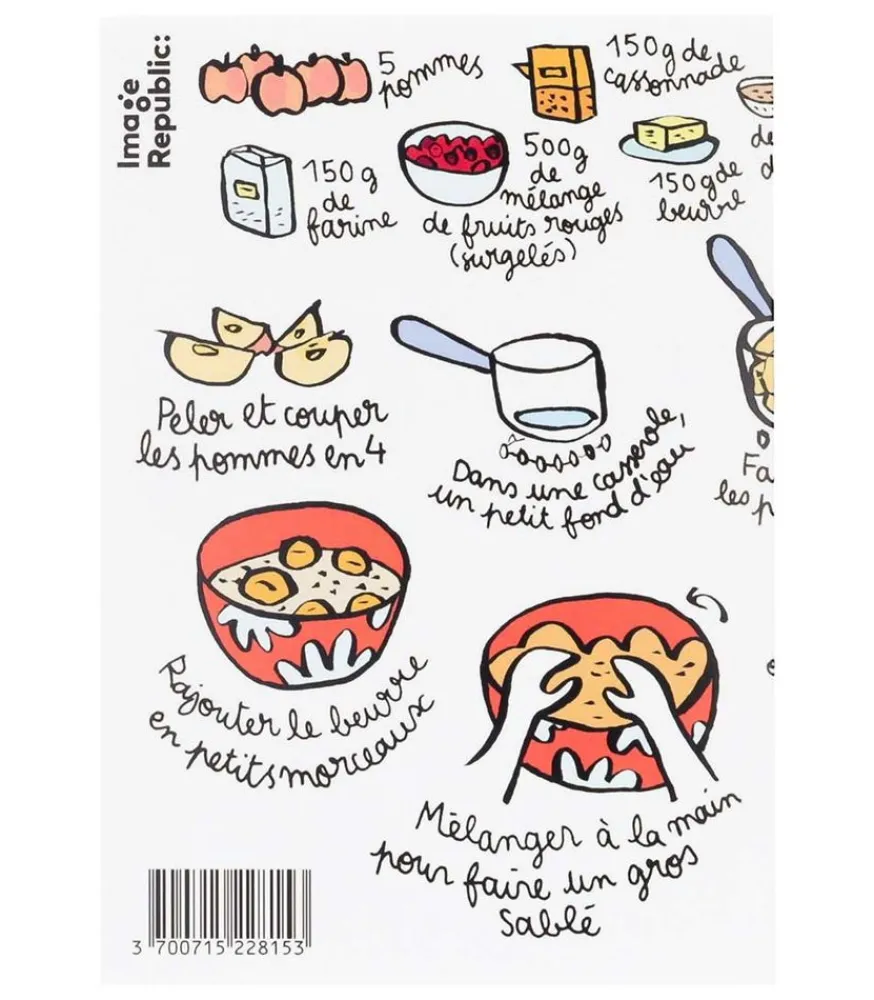 Image
Republic:
5
pommes
150g de
cassonnade
150g
de
farine
500g
de
mélange
de fruits rouges
(surgelés)
150g de
beurre
de
d
Peler et couper
les pommes en 4
Dans une casserole,
un petit fond d'eau
Fa
les p
Rajouter le beurre
en petits morceaux
Mélanger à la main
pour faire un gros
sablé
3 700715 228153